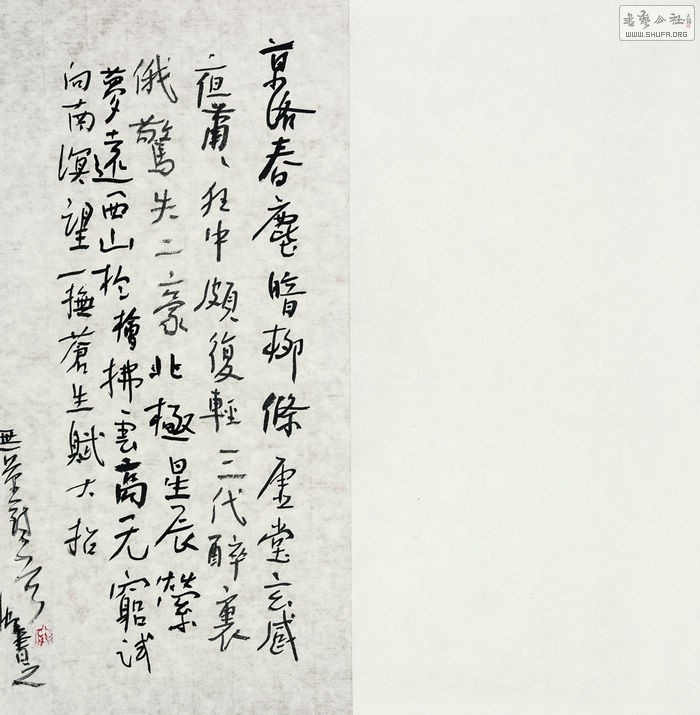 京洛春塵暗柳條虛堂忘感
夜蕭〻狂中頗復輕三代醉裏
俄驚失二豪北極星辰縈
夢遠西山松檜拂雲高无窮試
向南溟望一撫蒼生賦大招
書之
書藝公社
WWW.SHUFA.ORG